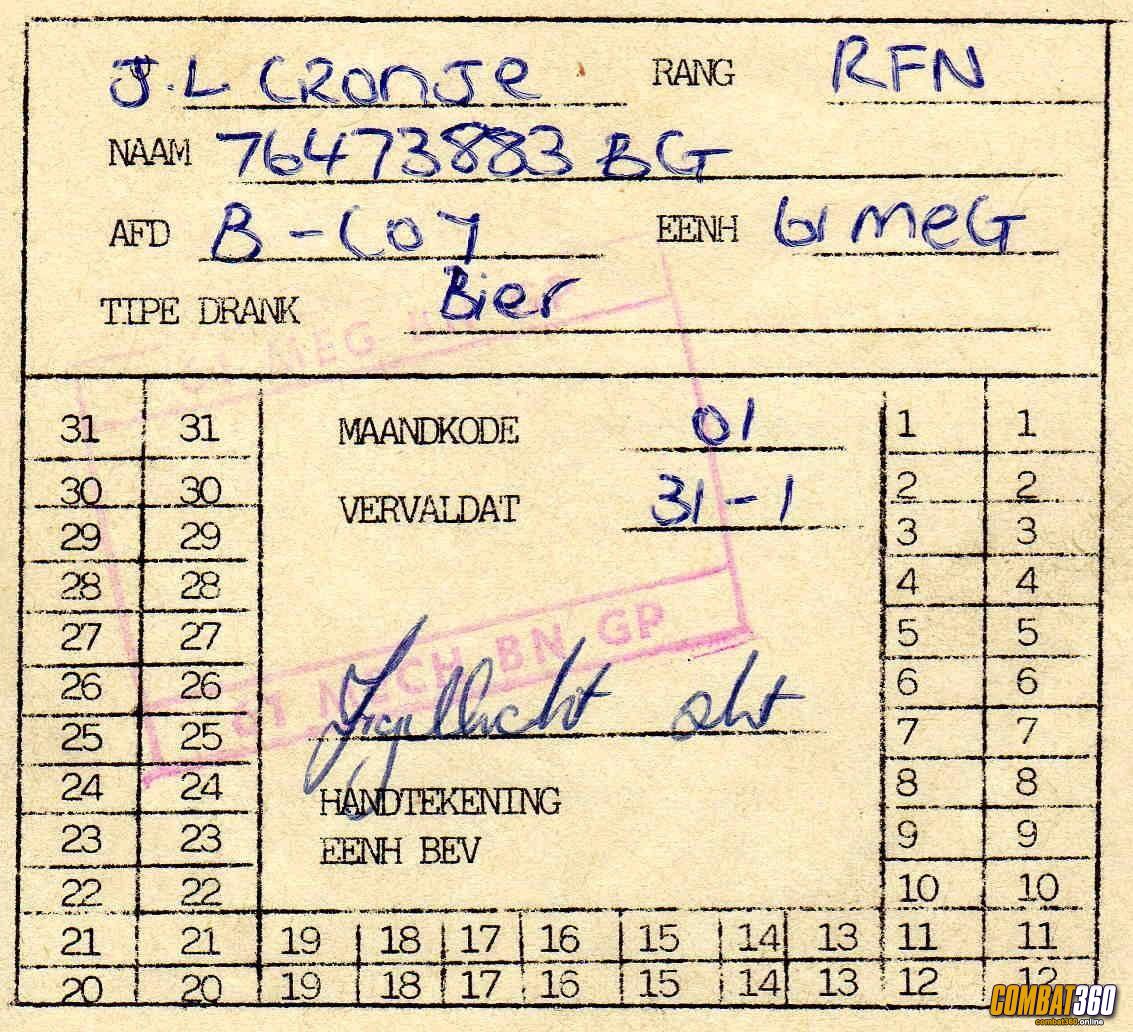 J.L CRONJE RANG RFN
NAAM 76473883 BG
AFD B-COY EENH 61 MEG
TIPE DRANK Bier
61 MEG BN GP
31 31 MAANDKODE 01 1 1
30 30 VERVALDAT 31-1 2 2
29 29 3 3
28 28 4 4
27 27 5 5
26 26 61 MECH BN GP 6 6
25 25 7 7
24 24 HANDTEKENING 8 8
23 23 EENH BEV 9 9
22 22 10 10
21 21 19 18 17 16 15 14 13 11 11
20 20 19 18 17 16 15 14 13 12 12
COMBAT360
combat360.online